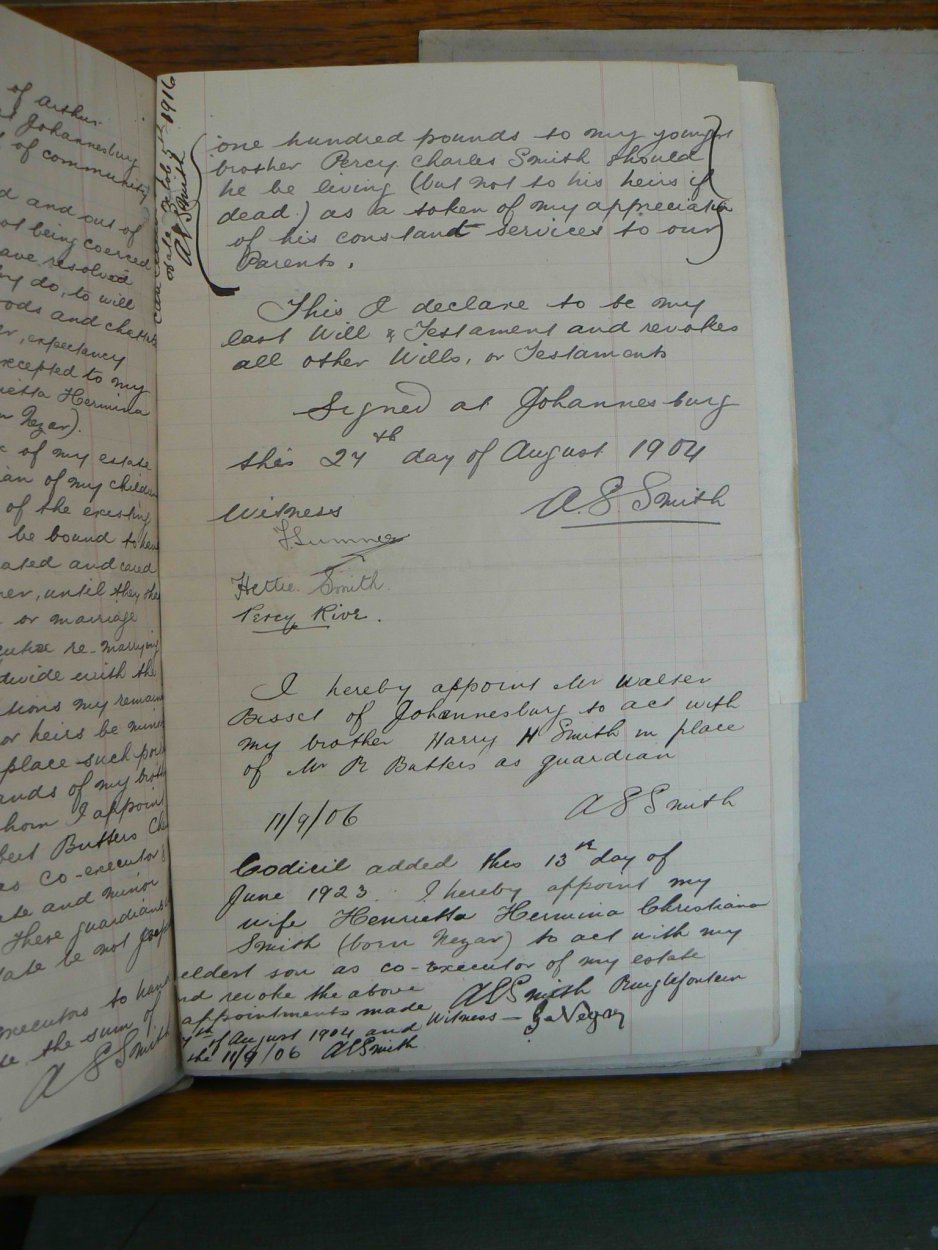 of Arthur
Johannesburg
of community
d and out of
ot being coerced
ave resolved
by do, to will
oods and chattels
er, expectancy
xcepted to my
rietta Hermina
n Nezar).
of my estate
ian of my children
of the existing
be bound to have
ated and cared
her, until they
or marriage
re-marrying
divide with the
tions my remain
or heirs be minor
place such
ands of my brother
hom I appoint
bert Butters
as co-executor
ate and minor
These guardians
tate be not
executors to hand
the sum of
A E Smith
date Feb 5th 1916
AESmith
one hundred pounds to my youngest
brother Percy Charles Smith should
he be living (but not to his heirs if
dead.) as a token of my appreciation
of his constant services to our
Parents.
This I declare to be my
last Will & Testament and revokes
all other Wills, or Testaments
Signed at Johannesburg
this 24th day of August 1904
Witness A.E. Smith
Hettie Smith.
Percy Rive.
I hereby appoint Mr Walter
Bisset of Johannesburg to act with
my brother Harry H Smith in place
of Mr R Butters as guardian
11/9/06 A E Smith
Codicil added this 13th day of
June 1923. I hereby appoint my
wife Henrietta Hermina Christiana
Smith (born Nezar) to act with my
eldest son as co-executor of my estate
nd revoke the above
appointments made AESmith
th of August 1904 and Witness —
the 11/9/06 AESmith